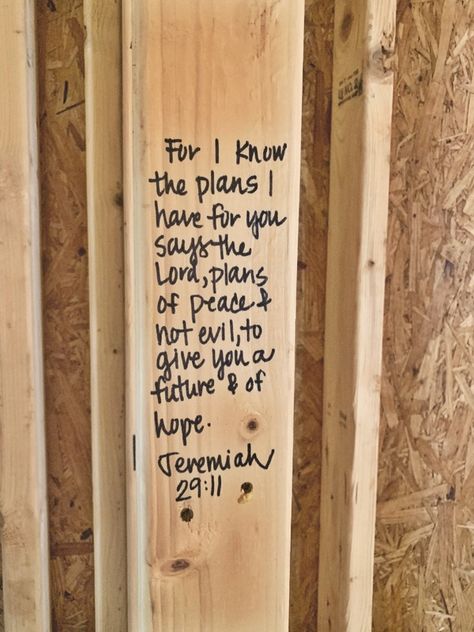 For I know
the plans I
have for you
says the
Lord, plans
of peace &
not evil, to
give you a
future & of
hope.
Jeremiah
29:11